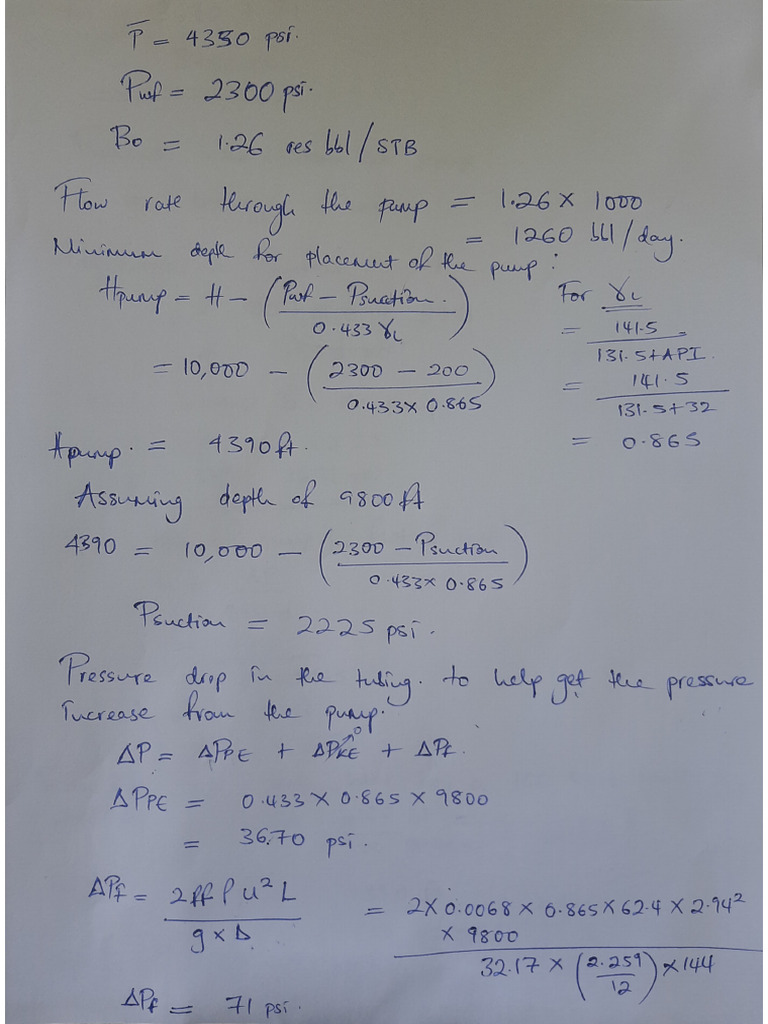 P̅ = 4350 psi.
Pwf = 2300 psi.
Bo = 1.26 res bbl / STB
Flow rate through the pump = 1.26 × 1000
= 1260 bbl / day.
Minimum depth for placement of the pump :
Hpump = H − (Pwf − Psuction. / 0.433 γL)
For γL
= 141.5 / 131.5 + API.
= 10,000 − (2300 − 200 / 0.433 × 0.865)
= 141.5 / 131.5 + 32
Hpump. = 4390 ft.
= 0.865
Assuming depth of 9800 ft
4390 = 10,000 − (2300 − Psuction / 0.433 × 0.865)
Psuction = 2225 psi.
Pressure drop in the tubing. to help get the pressure
increase from the pump.
ΔP = ΔPPE + ΔPKE↗0 + ΔPf.
ΔPPE = 0.433 × 0.865 × 9800
= 3670 psi.
ΔPf = 2 ff ρ u² L / g × D = 2 × 0.0068 × 0.865 × 62.4 × 2.94²
× 9800 / 32.17 × (2.259 / 12) × 144
ΔPf = 71 psi.